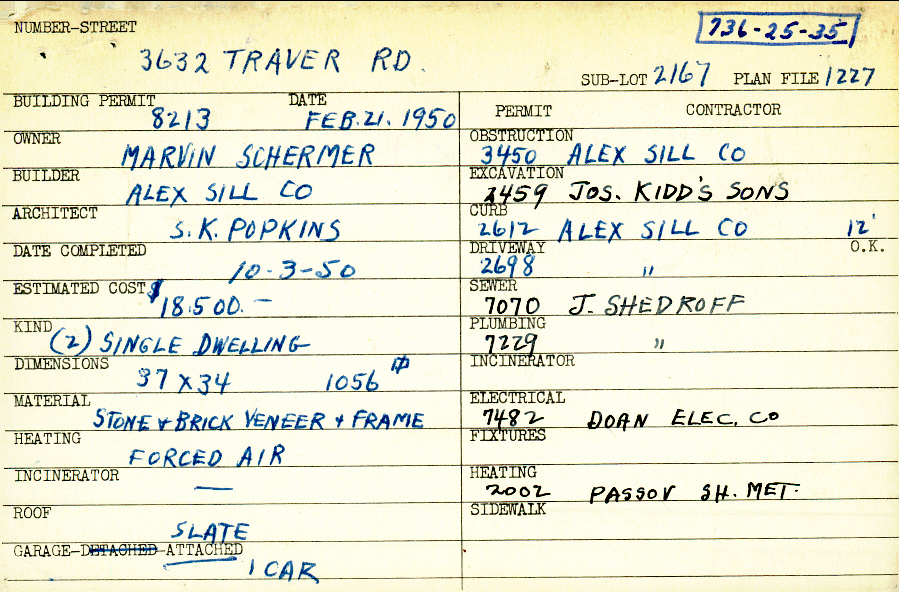 NUMBER-STREET
736-25-35
3632 TRAVER RD.
SUB-LOT 2167 PLAN FILE 1227
BUILDING PERMIT DATE
8213 FEB. 21. 1950
OWNER
MARVIN SCHERMER
BUILDER
ALEX SILL CO
ARCHITECT
S. K. POPKINS
DATE COMPLETED
10-3-50
ESTIMATED COST $
18.500.—
KIND
(2) SINGLE DWELLING
DIMENSIONS
37 X 34 1056
MATERIAL
STONE & BRICK VENEER & FRAME
HEATING
FORCED AIR
INCINERATOR
—
ROOF
SLATE
GARAGE-DETACHED-ATTACHED
1 CAR
PERMIT CONTRACTOR
OBSTRUCTION
3450 ALEX SILL CO
EXCAVATION
2459 JOS. KIDD'S SONS
CURB
2612 ALEX SILL CO 12'
DRIVEWAY O.K.
2698 "
SEWER
7070 J. SHEDROFF
PLUMBING
7229 "
INCINERATOR
ELECTRICAL
7482 DOAN ELEC. CO
FIXTURES
HEATING
2002 PASSOV SH. MET.
SIDEWALK